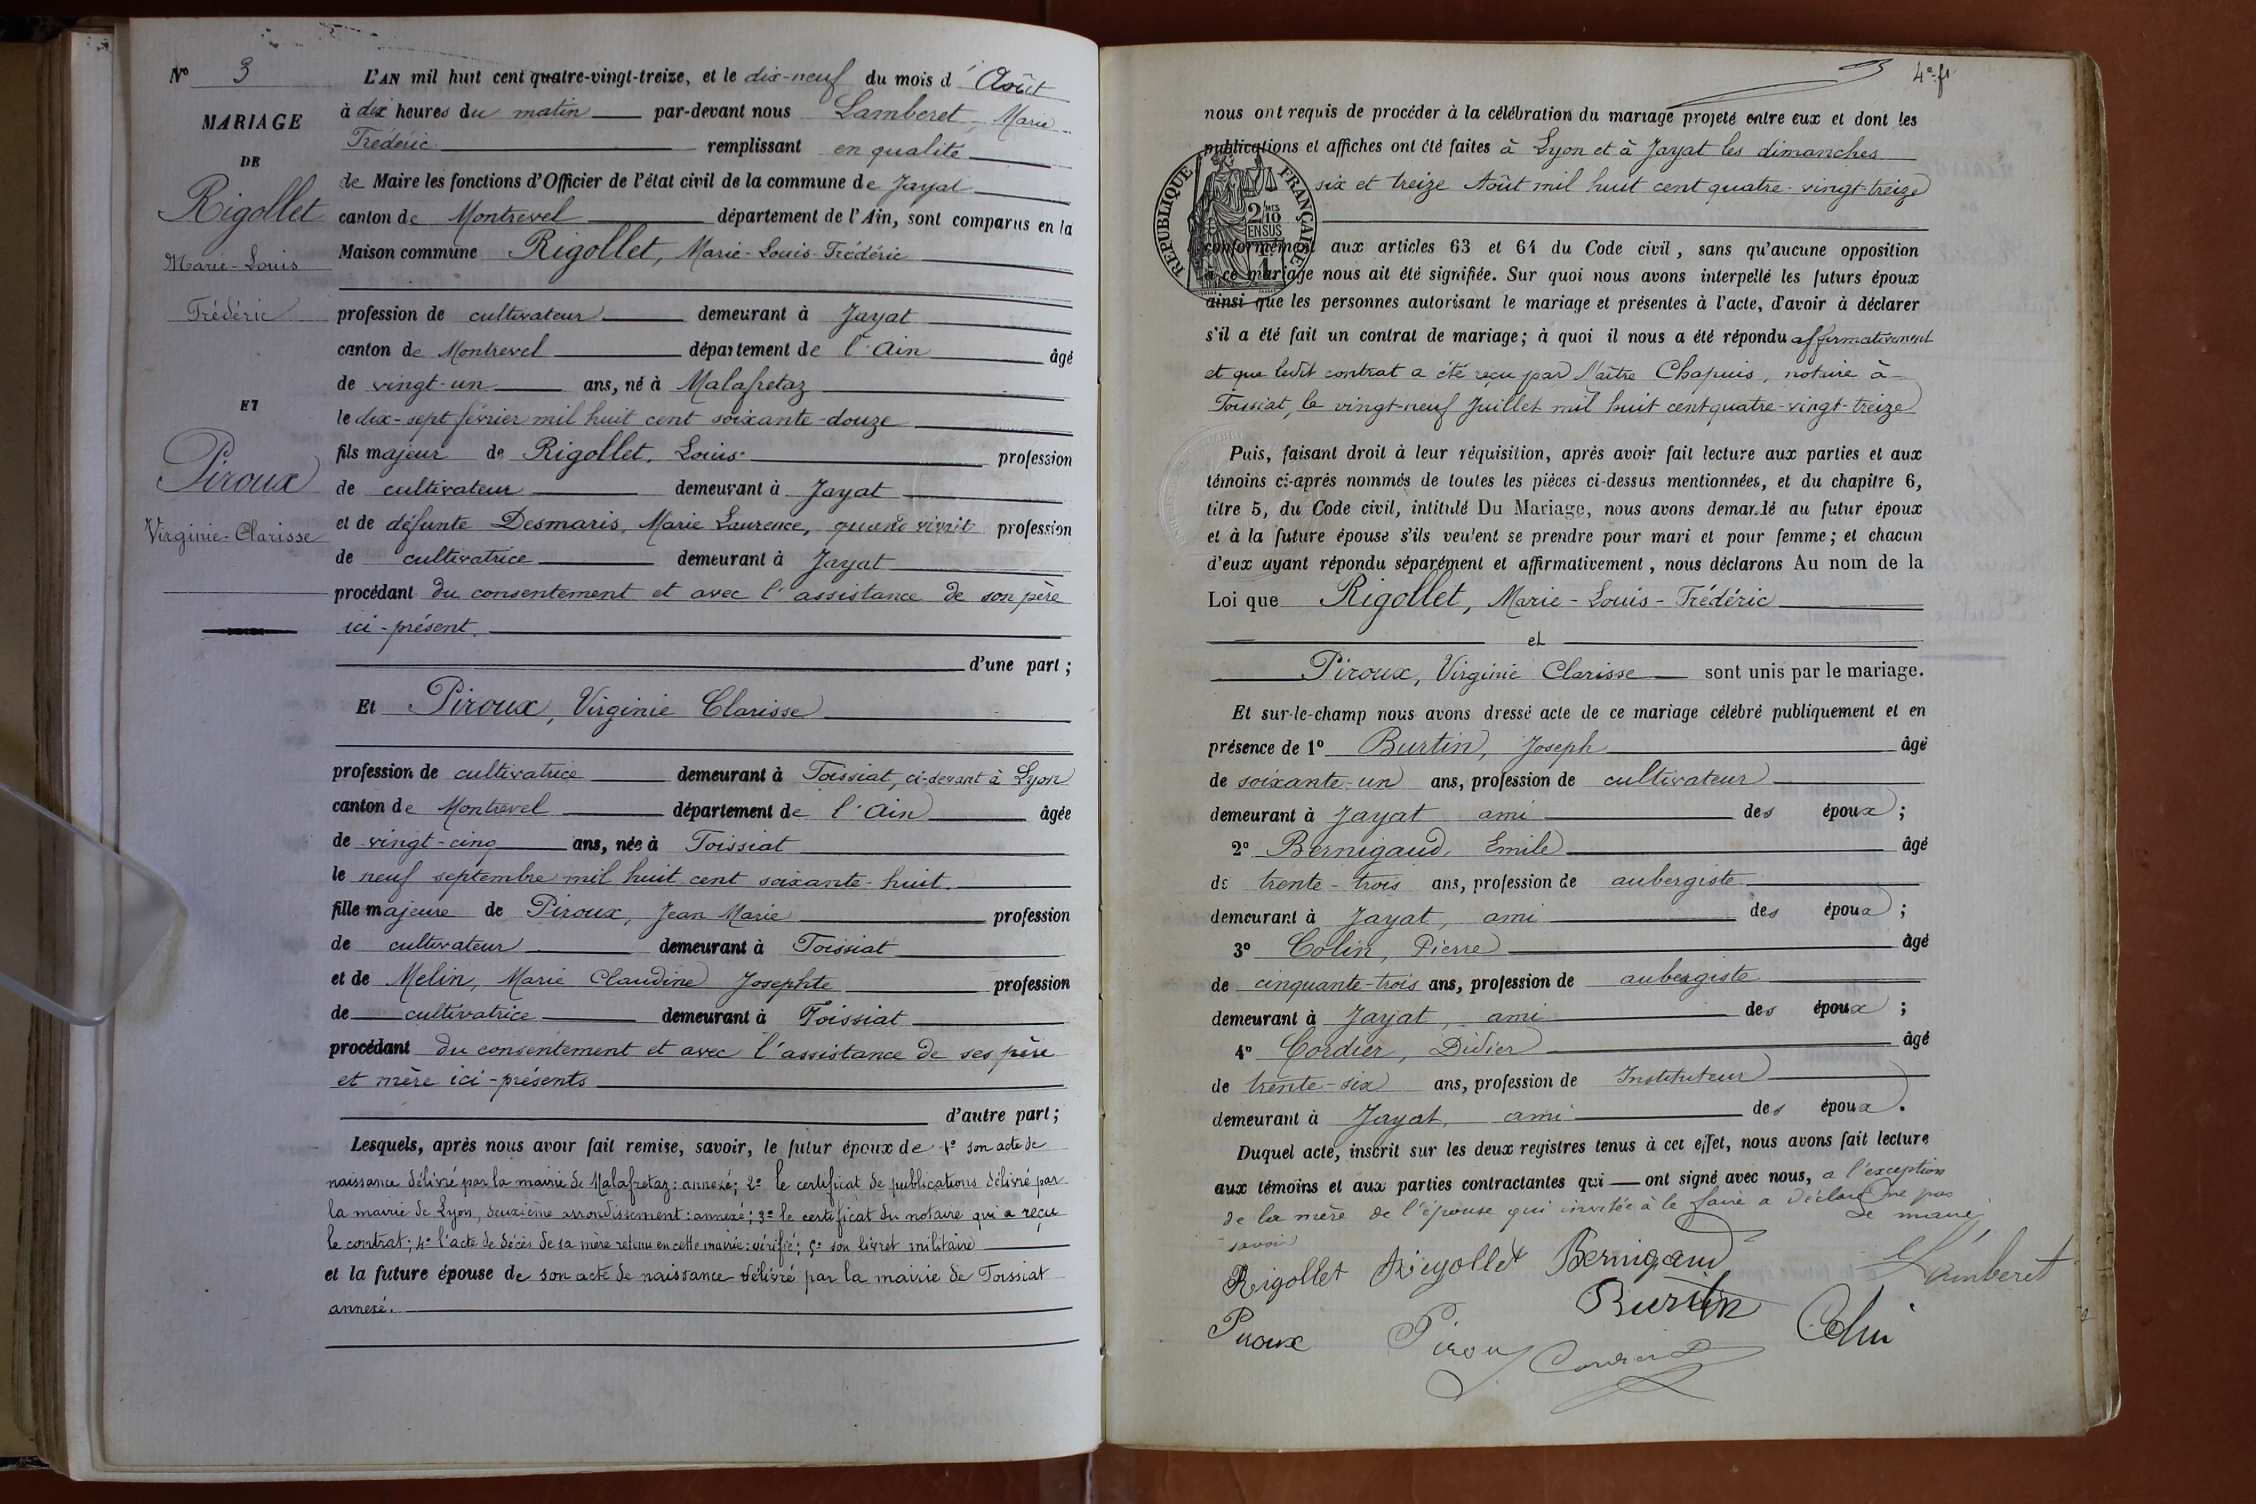 N° 3
MARIAGE
DE
Rigollet
Marie-Louis
Frédéric
ET
Piroux
Virginie-Clarisse
L'AN mil huit cent quatre-vingt-treize, et le dix-neuf du mois d' Août
à dix heures du matin par-devant nous Lamberet, Marie
Frédéric remplissant en qualité
de Maire les fonctions d'Officier de l'état civil de la commune de Jayat
canton de Montrevel département de l'Ain, sont comparus en la
Maison commune Rigollet, Marie-Louis-Frédéric
profession de cultivateur demeurant à Jayat
canton de Montrevel département de l'Ain âgé
de vingt-un ans, né à Malafretaz
le dix-sept février mil huit cent soixante-douze
fils majeur de Rigollet, Louis profession
de cultivateur demeurant à Jayat
et de défunte Desmaris, Marie Laurence, quand vivait profession
de cultivatrice demeurant à Jayat
procédant du consentement et avec l'assistance de son père
ici-présent.
d'une part;
Et Piroux, Virginie Clarisse
profession de cultivatrice demeurant à Foissiat, ci-devant à Lyon
canton de Montrevel département de l'Ain âgée
de vingt-cinq ans, née à Foissiat
le neuf septembre mil huit cent soixante-huit.
fille majeure de Piroux, Jean Marie profession
de cultivateur demeurant à Foissiat
et de Melin, Marie Claudine Josephte profession
de cultivatrice demeurant à Foissiat
procédant du consentement et avec l'assistance de ses père
et mère ici-présents
d'autre part;
Lesquels, après nous avoir fait remise, savoir, le futur époux de 1° son acte de
naissance délivré par la mairie de Malafretaz: annexé; 2° le certificat de publications délivré par
la mairie de Lyon, deuxième arrondissement: annexé; 3° le certificat du notaire qui a reçu
le contrat; 4° l'acte de décès de sa mère retenu en cette mairie: vérifié; 5° son livret militaire
et la future épouse de son acte de naissance délivré par la mairie de Foissiat
annexé.
4e ft
nous ont requis de procéder à la célébration du mariage projeté entre eux et dont les
publications et affiches ont été faites à Lyon et à Jayat les dimanches
six et treize Août mil huit cent quatre-vingt-treize
RÉPUBLIQUE FRANÇAISE
2/10
EN SUS
conformément aux articles 63 et 64 du Code civil, sans qu'aucune opposition
à ce mariage nous ait été signifiée. Sur quoi nous avons interpellé les futurs époux
ainsi que les personnes autorisant le mariage et présentes à l'acte, d'avoir à déclarer
s'il a été fait un contrat de mariage; à quoi il nous a été répondu affirmativement
et que ledit contrat a été reçu par Maître Chapuis, notaire à
Foissiat, le vingt-neuf Juillet mil huit cent quatre-vingt-treize
Puis, faisant droit à leur réquisition, après avoir fait lecture aux parties et aux
témoins ci-après nommés de toutes les pièces ci-dessus mentionnées, et du chapitre 6,
titre 5, du Code civil, intitulé Du Mariage, nous avons demandé au futur époux
et à la future épouse s'ils veulent se prendre pour mari et pour femme; et chacun
d'eux ayant répondu séparément et affirmativement, nous déclarons Au nom de la
Loi que Rigollet, Marie-Louis-Frédéric
et
Piroux, Virginie Clarisse sont unis par le mariage.
Et sur-le-champ nous avons dressé acte de ce mariage célébré publiquement et en
présence de 1° Burtin, Joseph âgé
de soixante-un ans, profession de cultivateur
demeurant à Jayat ami des époux;
2° Bernigaud, Emile âgé
de trente-trois ans, profession de aubergiste
demeurant à Jayat, ami des époux;
3° Colin, Pierre âgé
de cinquante-trois ans, profession de aubergiste
demeurant à Jayat, ami des époux;
4° Cordier, Didier âgé
de trente-six ans, profession de Instituteur
demeurant à Jayat, ami des époux.
Duquel acte, inscrit sur les deux registres tenus à cet effet, nous avons fait lecture
aux témoins et aux parties contractantes qui ont signé avec nous, a l'exception
de la mère de l'épouse qui invitée à le faire a déclaré ne pas
savoir
Le maire
Rigollet Rigollet Bernigaud Lamberet
Burtin
Piroux Piroux Colin
Cordier D